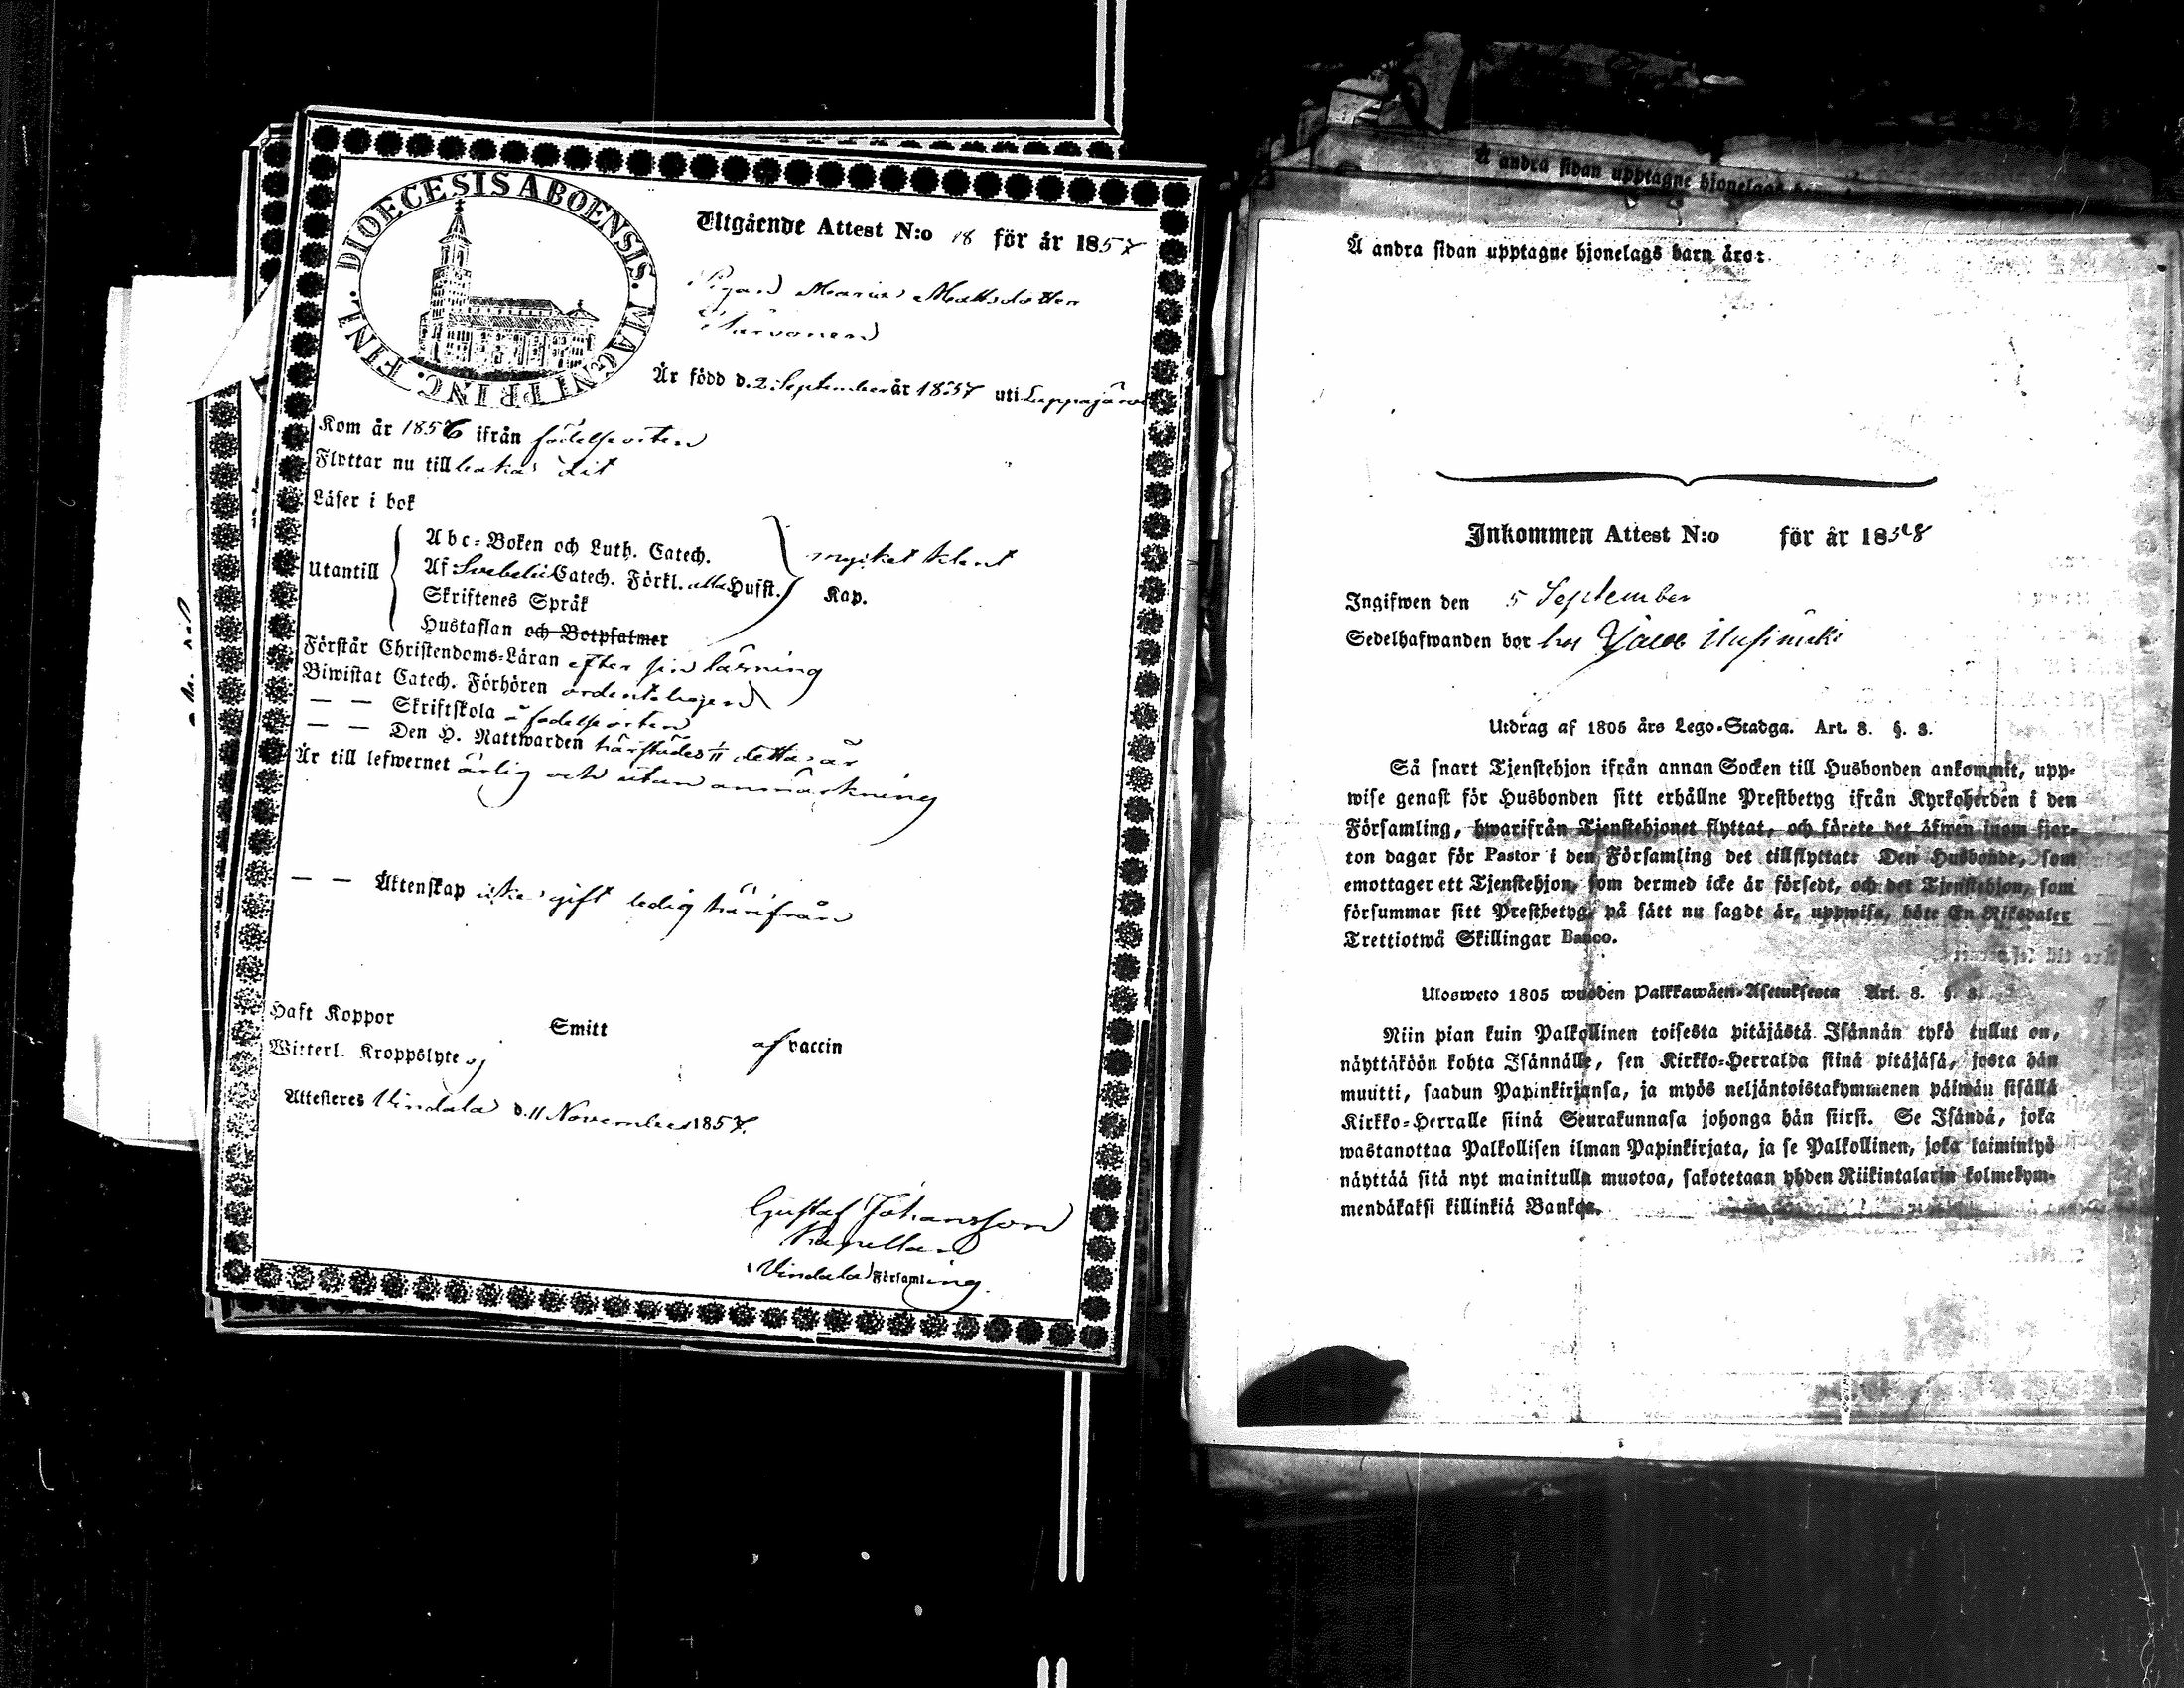 DIOECESIS ABOENSIS. MAGNI PRINC. FINL.
Utgående Attest N:o 18 för år 1857
Pigan Maria Mattsdotter
Är född d. 2 September år 1837 uti Lappajärvi
Kom år 1856 ifrån födelseorten
Flyttar nu till baka dit
Läser i bok
Utantill
Abc-Boken och Luth. Catech.
Af Svebelii Catech. Förkl. alla Hufst.
mycket klent
Kap.
Skriftenes Språk
Hustaflan och Botpsalmer
Förstår Christendoms-Läran efter sin läsning
Biwistat Catech. Förhören ordenteligen
— — Skriftskola å födelseorten
— — Den H. Nattwarden härstädes detta år
Är till lefwernet ärlig och utan anmärkning
— — Äktenskap icke gift ledig härifrån
Haft Koppor Smitt af vaccin
Witterl. Kroppslyte ej
Attesteres Vindala d. 11 November 1857.
Gustaf Johansson
Kapellan
i Vindala Församling.
Å andra sidan upptagne hjonelags
Å andra sidan upptagne hjonelags barn äro:
Inkommen Attest N:o för år 1858
Ingifwen den 5 September
Sedelhafwanden bor hos Jacob
Utdrag af 1805 års Lego-Stadga. Art. 8. §. 3.
Så snart Tjenstehjon ifrån annan Socken till Husbonden ankommit, upp-
wise genast för Husbonden sitt erhållne Prestbetyg ifrån Kyrkoherden i den
Församling, hwarifrån Tjenstehjonet flyttat, och förete det äfwen inom fjor-
ton dagar för Pastor i den Församling det tillflyttat: Den Husbonde, som
emottager ett Tjenstehjon, som dermed icke är försedt, och det Tjenstehjon, som
försummar sitt Prestbetyg, på sätt nu sagdt är, uppwisa, böte En Riksdaler
Trettiotwå Skillingar Banco.
Ulosweto 1805 wuoden Palkkawäen-Asetuksesta Art. 8. §. 3.
Niin pian kuin Palkollinen toisesta pitäjästä Isännän tykö tullut on,
näyttäköön kohta Isännälle, sen Kirkko-Herralda siinä pitäjäsä, josta hän
muutti, saadun Papinkirjansa, ja myös neljäntoistakymmenen päiwän sisällä
Kirkko-Herralle siinä Seurakunnasa johonga hän siirsi. Se Isändä, joka
wastanottaa Palkollisen ilman Papinkirjata, ja se Palkollinen, joka laiminlyö
näyttää sitä nyt mainitulla muotoa, sakotetaan yhden Riikintalarin kolmekym-
mendäkaksi killinkiä Bankoa.